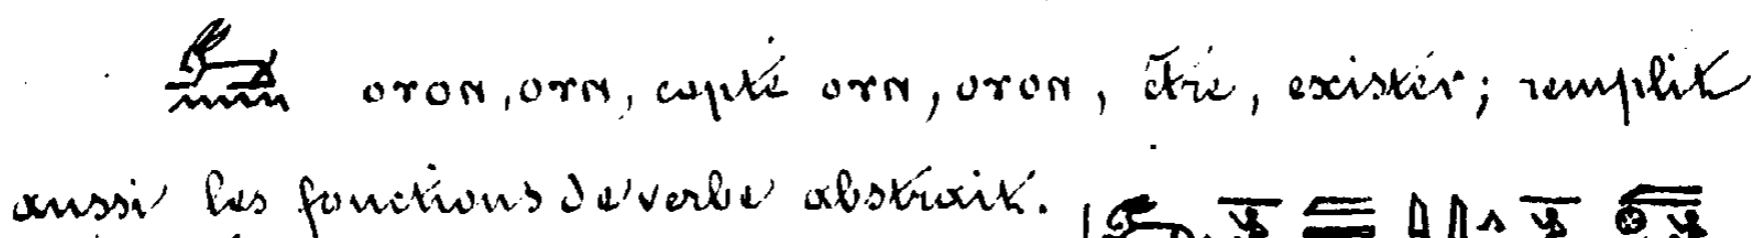 𓃹𓈖 ⲟⲩⲟⲛ, ⲟⲩⲛ, copte ⲟⲩⲛ, ⲟⲩⲟⲛ, être, exister; remplit
aussi les fonctions de verbe abstrait.